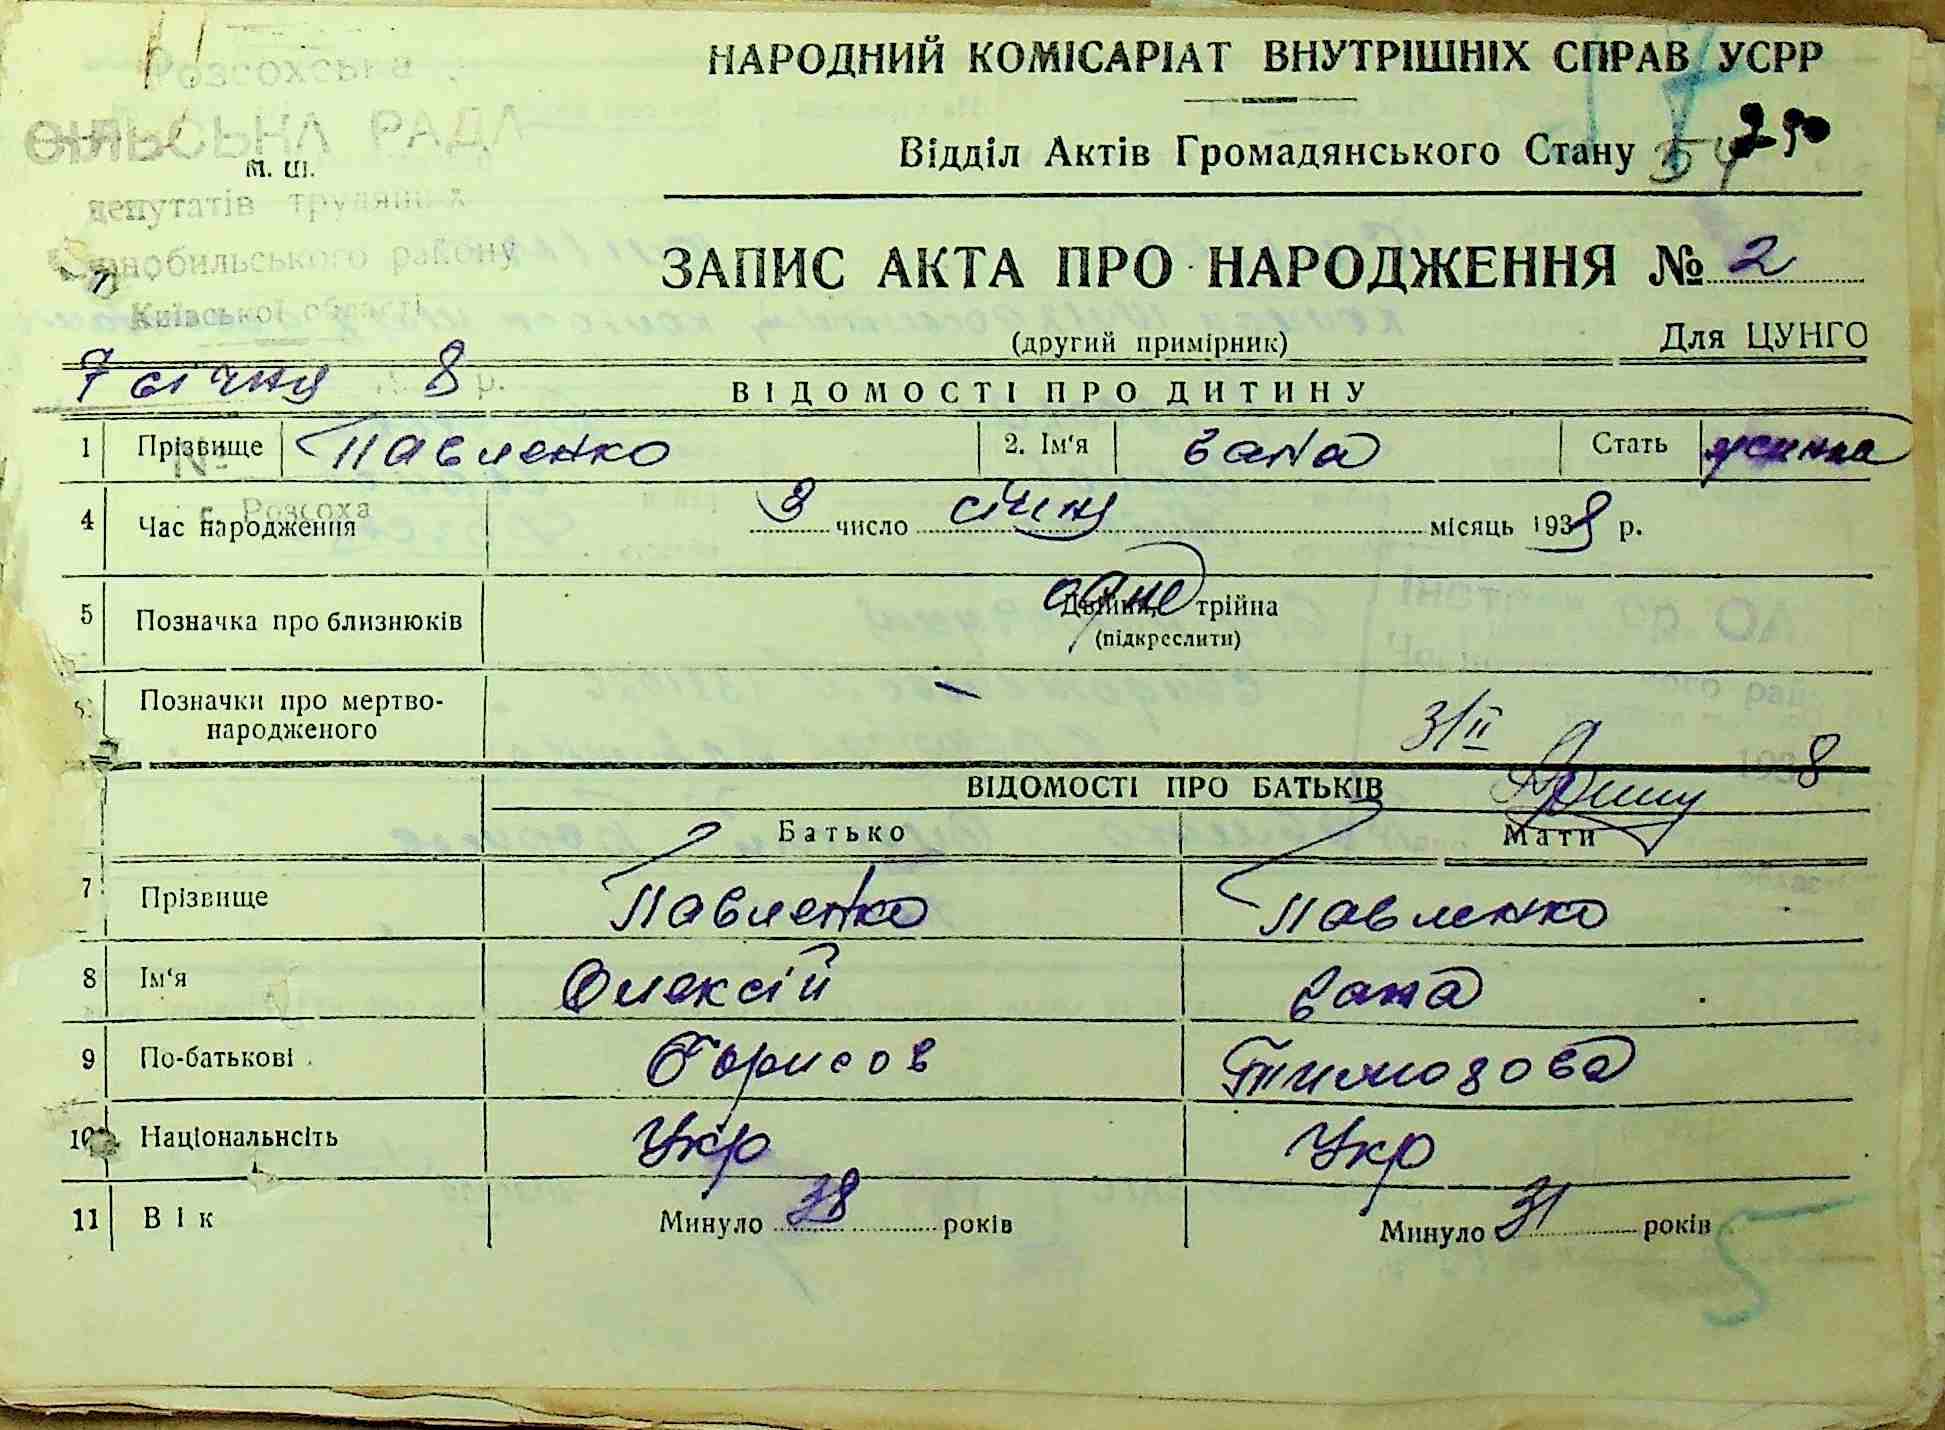 Розсохська
СІЛЬСЬКА РАДА
м. ш.
депутатів трудящих
Чорнобильського району
Київської області
7 січня 8 р.
№
с. Розсоха
НАРОДНИЙ КОМІСАРІАТ ВНУТРІШНІХ СПРАВ УСРР
Відділ Актів Громадянського Стану 54 290
ЗАПИС АКТА ПРО НАРОДЖЕННЯ № 2
(другий примірник) Для ЦУНГО
ВІДОМОСТІ ПРО ДИТИНУ
1 Прізвище Павленко 2. Ім'я Гапа Стать жіноча
4 Час народження 3 число січня місяць 1938 р.
5 Позначка про близнюків одне Двійня, трійна
(підкреслити)
6. Позначки про мертво-
народженого -
3/II 8
ВІДОМОСТІ ПРО БАТЬКІВ
Батько Мати
7 Прізвище Павленко Павленко
8 Ім'я Олексій Гапа
9 По-батькові Борисов
10 Національнсіть Укр Укр
11 Вік Минуло 38 років Минуло 31 років
5